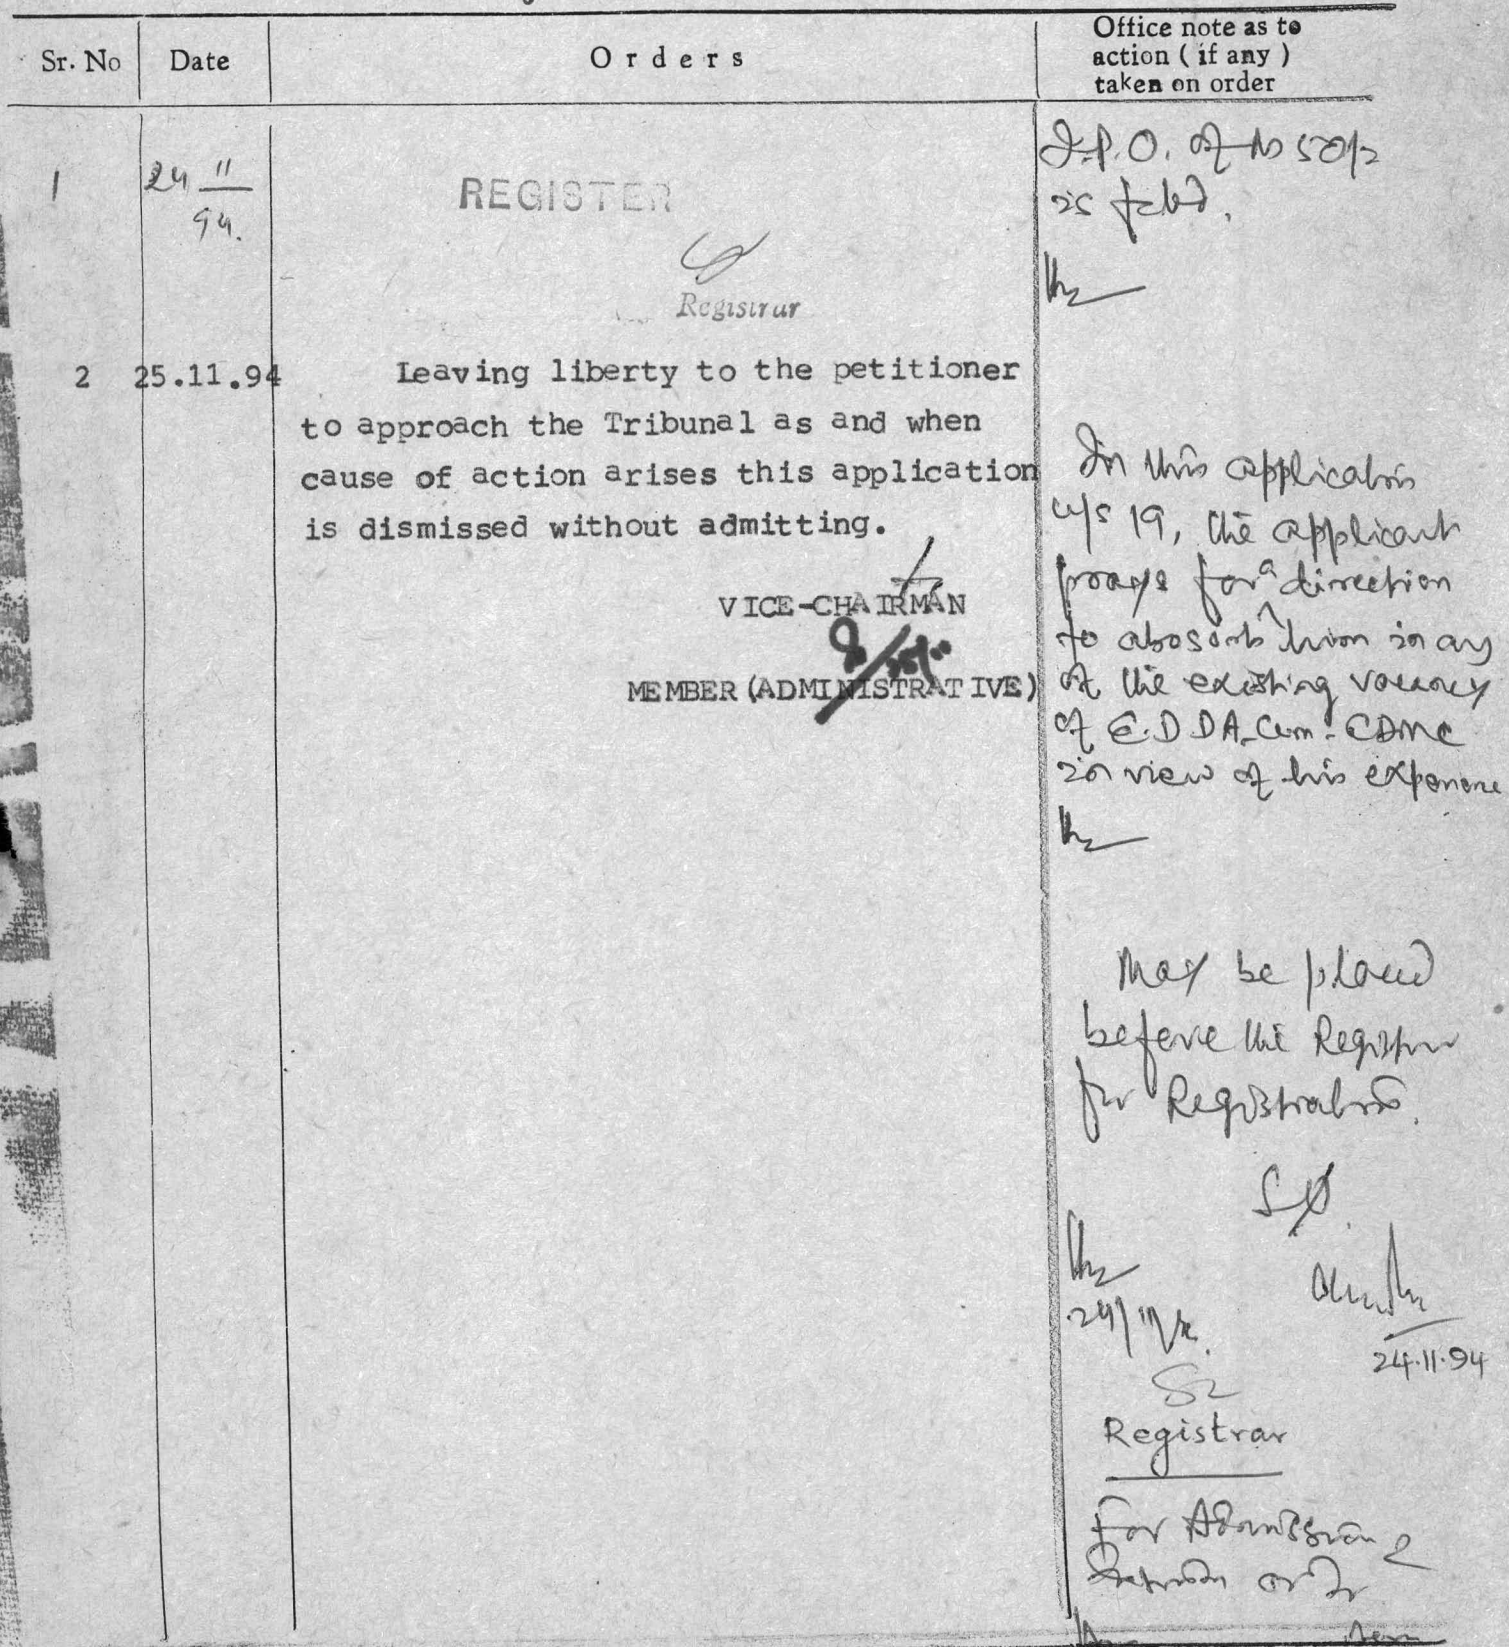 Sr. No
Date
Orders
Office note as to
action ( if any )
taken on order
1
24 11
94.
REGISTER
Registrar
I.P.O. of Rs 50/-
is filed.
2 25.11.94
Leaving liberty to the petitioner
to approach the Tribunal as and when
cause of action arises this application
is dismissed without admitting.
VICE-CHAIRMAN
MEMBER (ADMINISTRATIVE)
In this application
u/s 19, the applicant
prays for a direction
to absorb him in any
of the existing vacancy
of E.D DA-Cum-EDMC
in view of his experience
May be placed
before the Registrar
for Registration.
S.O.
24/11/94
24.11.94
Registrar
For Admission &